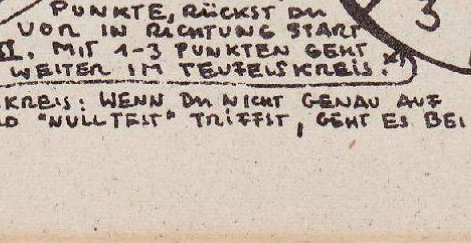 PUNKTE, RÜCKST DU
VOR IN RICHTUNG START
II. MIT 1-3 PUNKTEN GEHT
WEITER IM TEUFELSKREIS.*)
3
KREIS: WENN DU NICHT GENAU AUF
D "NULLTEST" TRIFFST, GEHT ES BEI